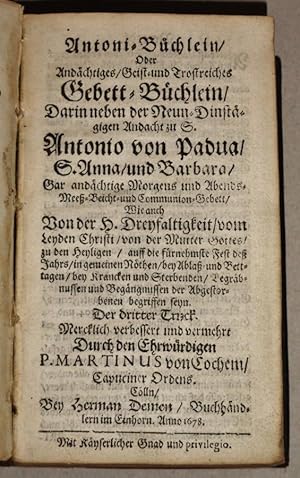 Antoni-Büchlein/
Oder
Andächtiges/Geist-und Trostreiches
Gebett-Büchlein/
Darin neben der Neun-Dinstä-
gigen Andacht zu S.
Antonio von Padua/
S. Anna/und Barbara/
Gar andächtige Morgens und Abends-
Meeß-Beicht-und Communion-Gebett/
Wie auch
Von der H. Dreyfaltigkeit/vom
Leyden Christi/von der Mutter Gottes/
zu den Heyligen/ auff die fürnehmste Fest deß
Jahrs/in gemeinen Nöthen/bey Ablaß-und Bett-
tagen/bey Krancken und Sterbenden/Begräb-
nussen und Begängnissen der Abgestor-
benen begriffen seyn.
Der dritter Truck.
Mercklich verbessert und vermehrt
Durch den Ehrwürdigen
P. MARTINUS von Cochem/
Capuciner Ordens.
Cölln/
Bey Herman Demen/ Buchhänd-
lern im Einhorn. Anno 1678.
Mit Käyserlicher Gnad und privilegio.